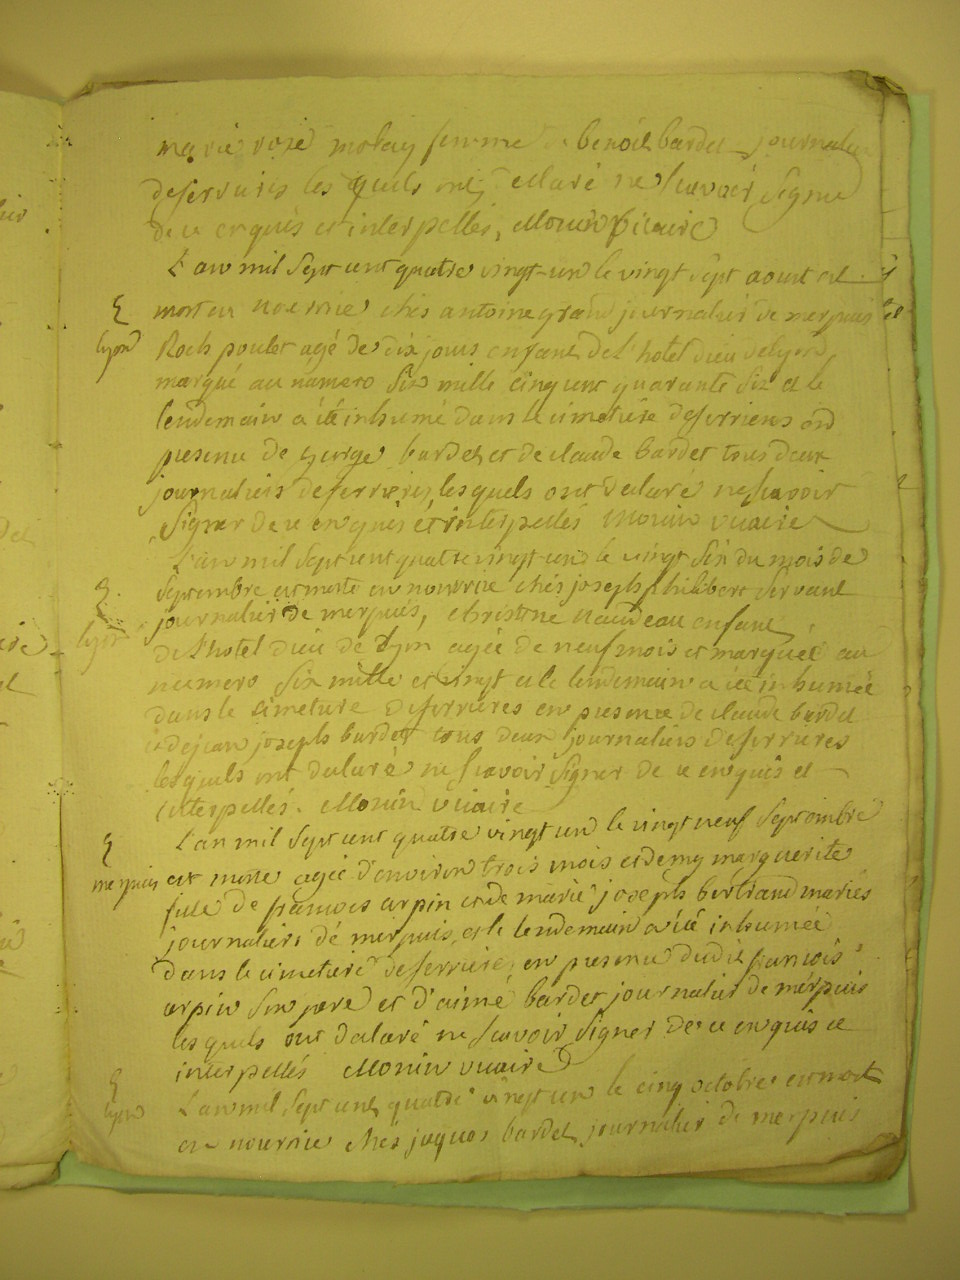 marie rose molay femme de benoit bardet journalier
deferrieres les quels ont declaré ne scavoir signé
de ce enquis et interpellés, Monin vicaire
L'an mil sept cent quatre vingt-un le vingt sept aoust est
mort en nourrice chés antoine grand journalier de merpuis
lyon Roch poulet agé de dix jours enfant de l'hotel dieu de lyon,
marqué au numero six mille cinq cent quarante six et le
lendemain a été inhumé dans le cimetiere deferrieres en
presence de george bardet et de claude bardet tous deux
journaliers deferrieres lesquels ont declaré ne scavoir
signer de ce enquis et interpellés Monin vicaire
L'an mil sept cent quatre vingt-un le vingt six du mois de
septembre est morte en nourrice chés joseph philibert servant
journalier de merpuis, christine naudeau enfant
lyon
de l'hotel dieu de lyon agée de neuf mois et marquée au
numero six mille et vingt et le lendemain a été inhumée
dans le cimetiere deferrieres en presence de claude bardet
et de jean joseph bardet tous deux journaliers deferrieres
lesquels ont declaré ne scavoir signer de ce enquis et
interpellés. Monin vicaire
L'an mil sept cent quatre vingt un le vingt neuf septembre
merpuis est morte agée d'environ trois mois et demy marguerite
fille de françois arpin et de marie joseph bertrand mariés
journaliers de merpuis, et le lendemain a été inhumée
dans le cimetiere deferrieres en presence dudit françois
arpin son pere et d'aimé bardet journalier de merpuis
lesquels ont declaré ne scavoir signer de ce enquis et
interpellés Monin vicaire
lyon L'an mil sept cent quatre vingt un le cinq octobre est mort
en nourrice chés jaques bardet journalier de merpuis